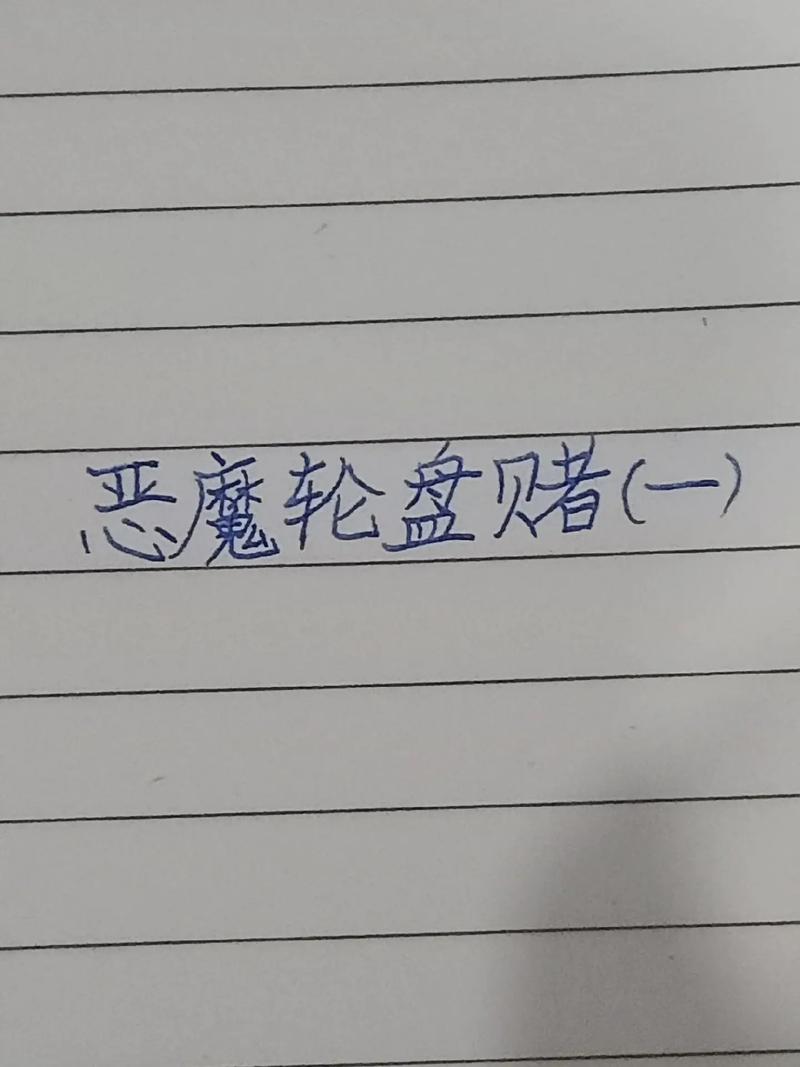 恶魔轮盘赌(一)